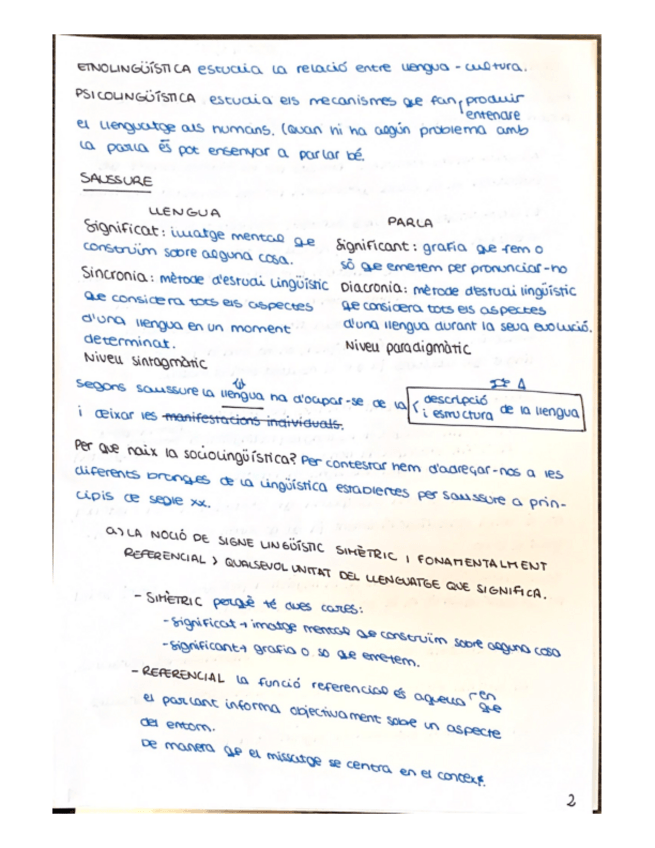 ETNOLINGÜÍSTICA estudia la relació entre llengua - cultura.
PSICOLINGÜÍSTICA estudia els mecanismes que fan produir
entendre
el llenguatge als humans. (Quan hi ha algún problema amb
la parla és pot ensenyar a parlar bé.
SAUSSURE
LLENGUA
PARLA
Significat: imatge mental que
construïm sobre alguna cosa.
Significant: grafia que fem o
só que emetem per pronunciar-ho
Sincronia: mètode d'estudi lingüístic
que considera tots els aspectes
d'una llengua en un moment
determinat.
Diacronia: mètode d'estudi lingüístic
que considera tots els aspectes
d'una llengua durant la seua evolució.
Niveu sintagmàtic
Niveu paradigmàtic
Segons Saussure la llengua ha d'ocupar-se de la descripció
i estructura de la llengua
i deixar les manifestacions individuals.
Per que naix la sociolingüística? Per contestar hem d'adreçar-nos a les
diferents branques de la lingüística establertes per Saussure a prin-
cipis de segle xx.
a) LA NOCIÓ DE SIGNE LINGÜÍSTIC SIMÈTRIC I FONAMENTALMENT
REFERENCIAL > QUALSEVOL UNITAT DEL LLENGUATGE QUE SIGNIFICA.
- SIMÈTRIC perquè té dues cares:
- Significat → imatge mental que construïm sobre alguna cosa
- Significant → grafia o so que emetem.
- REFERENCIAL la funció referencial és aquella en
que
el parlant informa objectivament sobre un aspecte
del entorn.
De manera que el missatge se centra en el context.
2